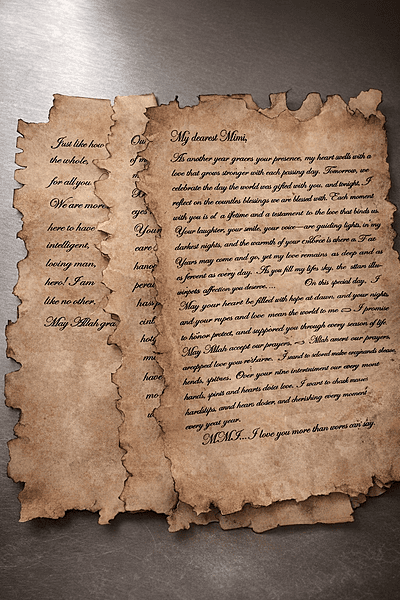 Just like how
the whole,
for all you
We are more
here to have
intelligent,
loving man,
hero! I am
like no other.
May Allah gra
Ou
of m
eyes
Your
care
hand
pera
hass
cint
hot
mu
have
mo
My dearest Mimi,
As another year graces your presence, my heart swells with a
love that grows stronger with each passing day. Tomorrow, we
celebrate the day the world was gifted with you, and tonight, I
reflect on the countles blessings we are blessed with. Each moment
with you is a lfetime and a testament to the love that binds us.
Your laughter, your smile, your voice—are guiding lights, in my
darkest nights, and the warmth of your is there
Years may come and go, yet my love remains as deep and as
as fervent as every day. As you fill my lifes sky, the
affection you deserve.... On this special day. I
May your heart be filled with hope at dawn, and your nights,
and your ropes and love mean the world to me I promise
to honor protect, and suppored you through every season of life.
May Allah accept our prayers. Allah aners our prayers.
love you I
hends, Over your nine our every most
hands, spirits and hearts love. I want to
hardships, annd hearn doser, and cherishing every moment
every year year.
MMI... I love you more than wores can say.